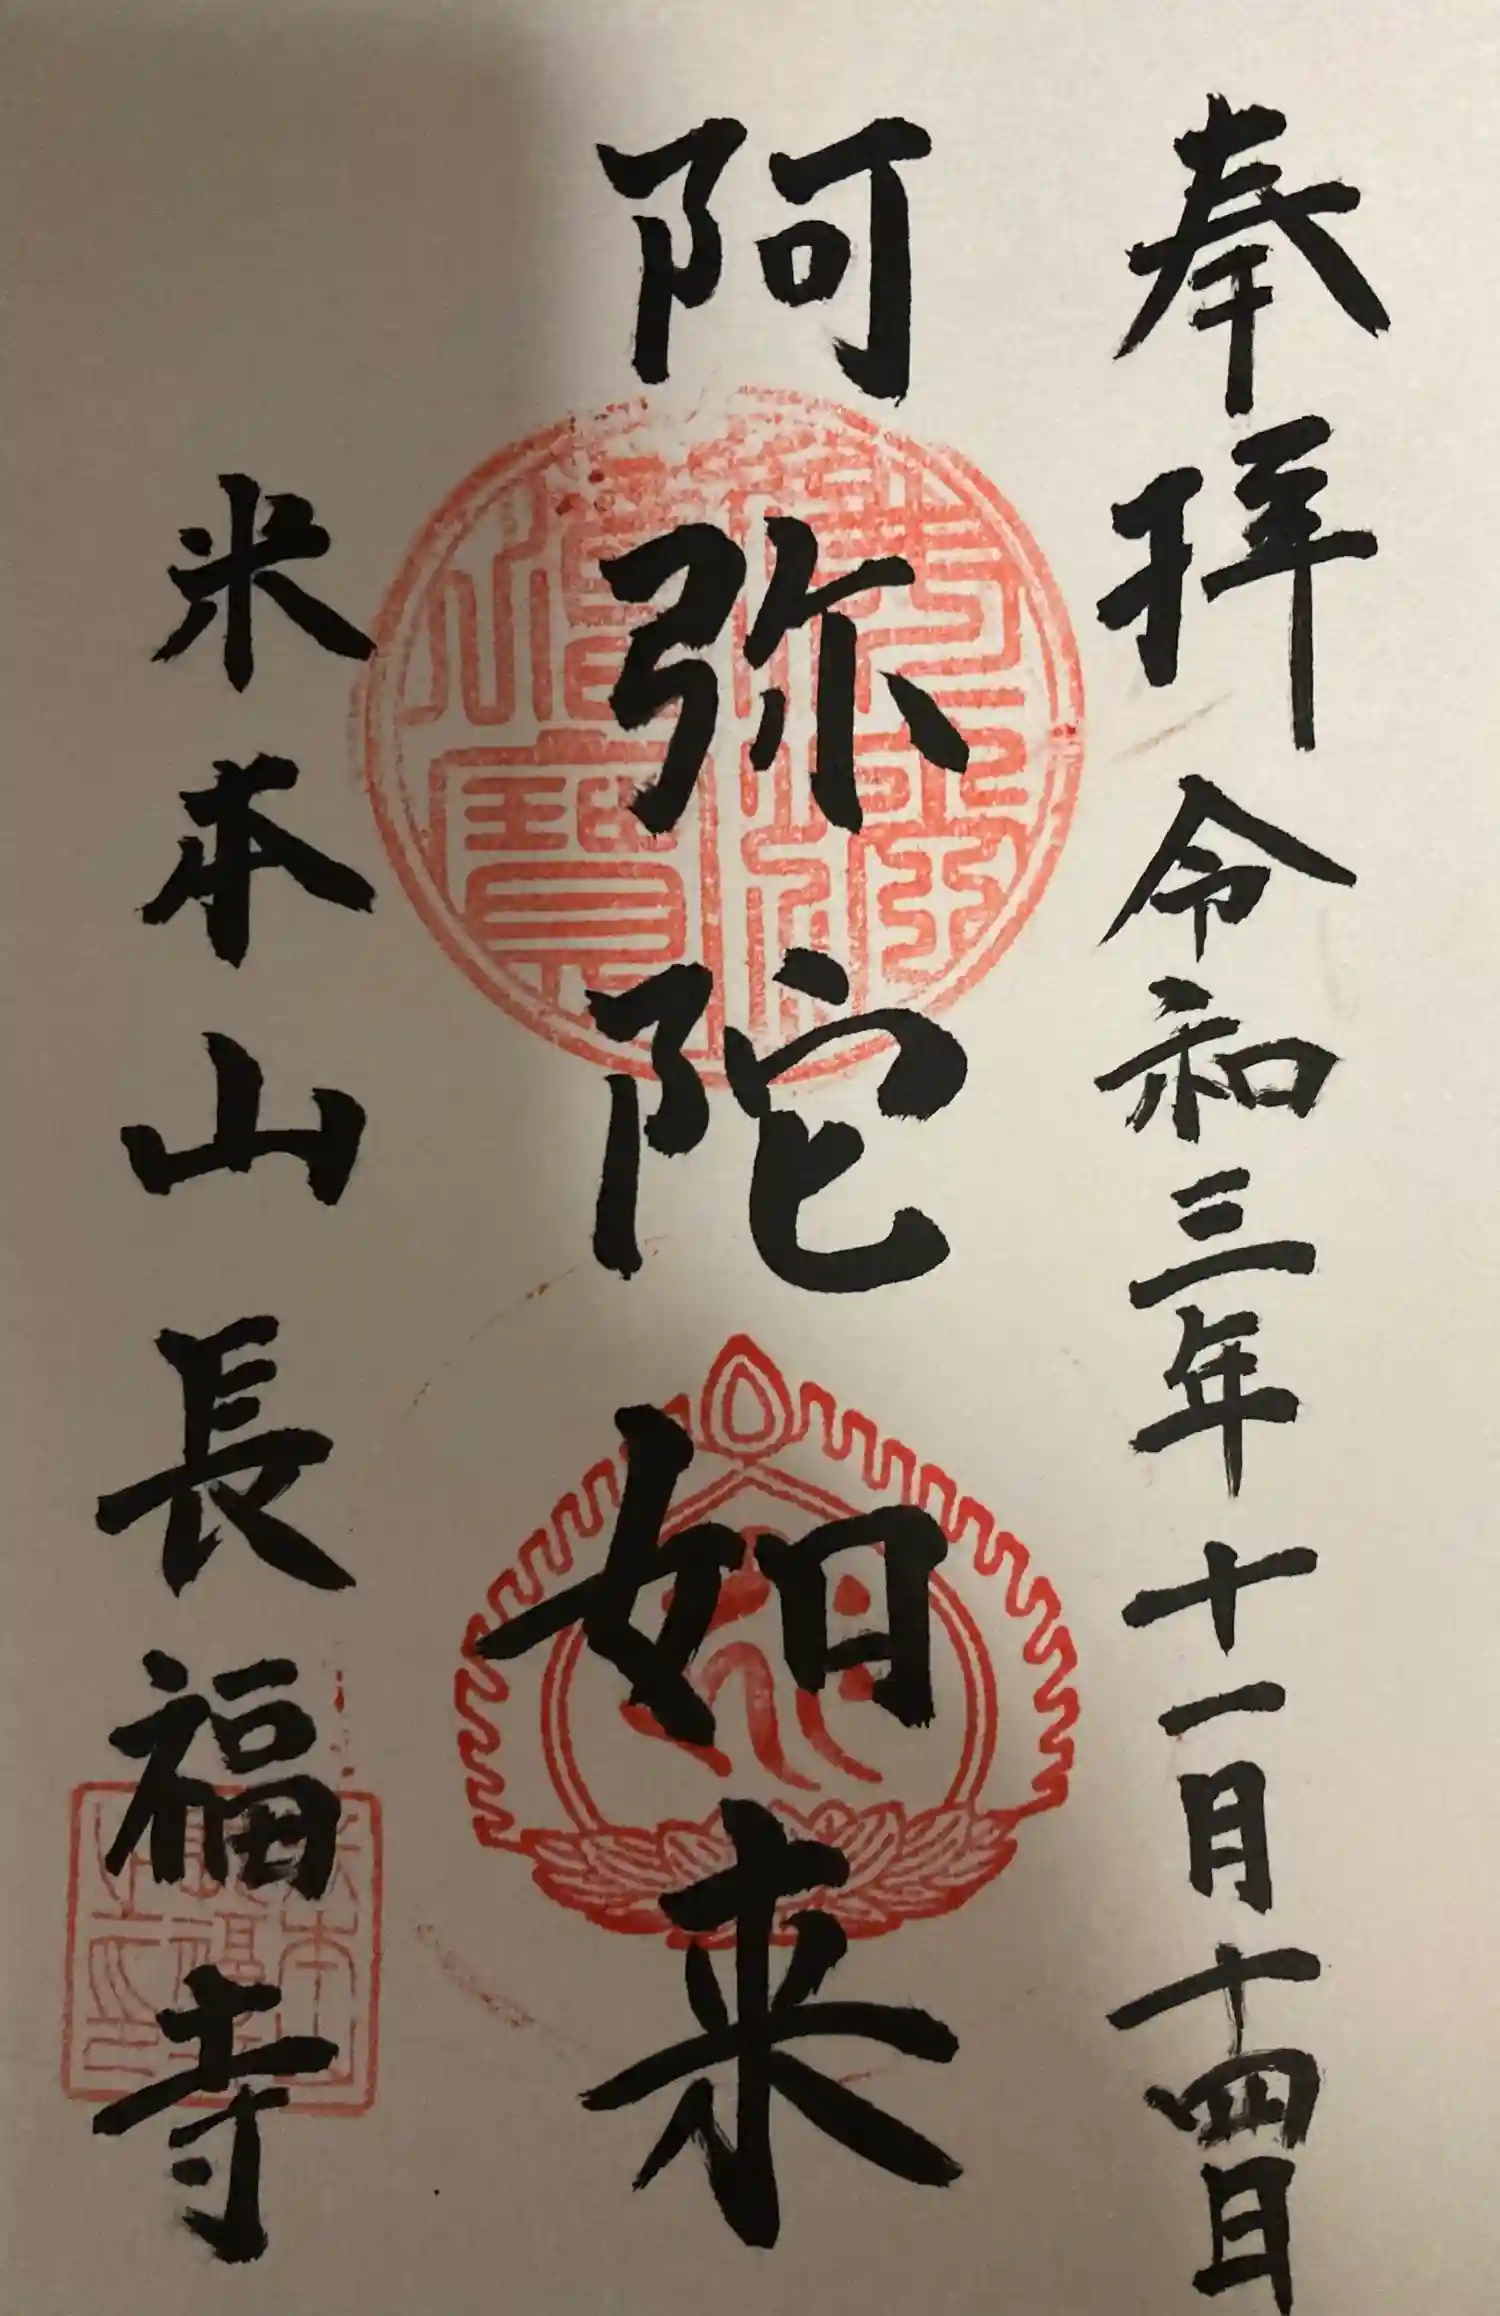 奉拝 令和三年十一月十四日
阿弥陀如来
米本山長福寺